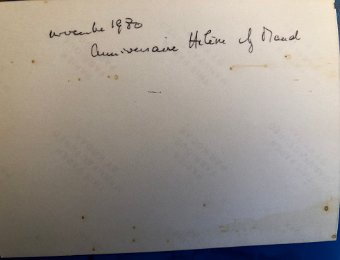 novembre 1980
Anniversaire Hélène et Maud